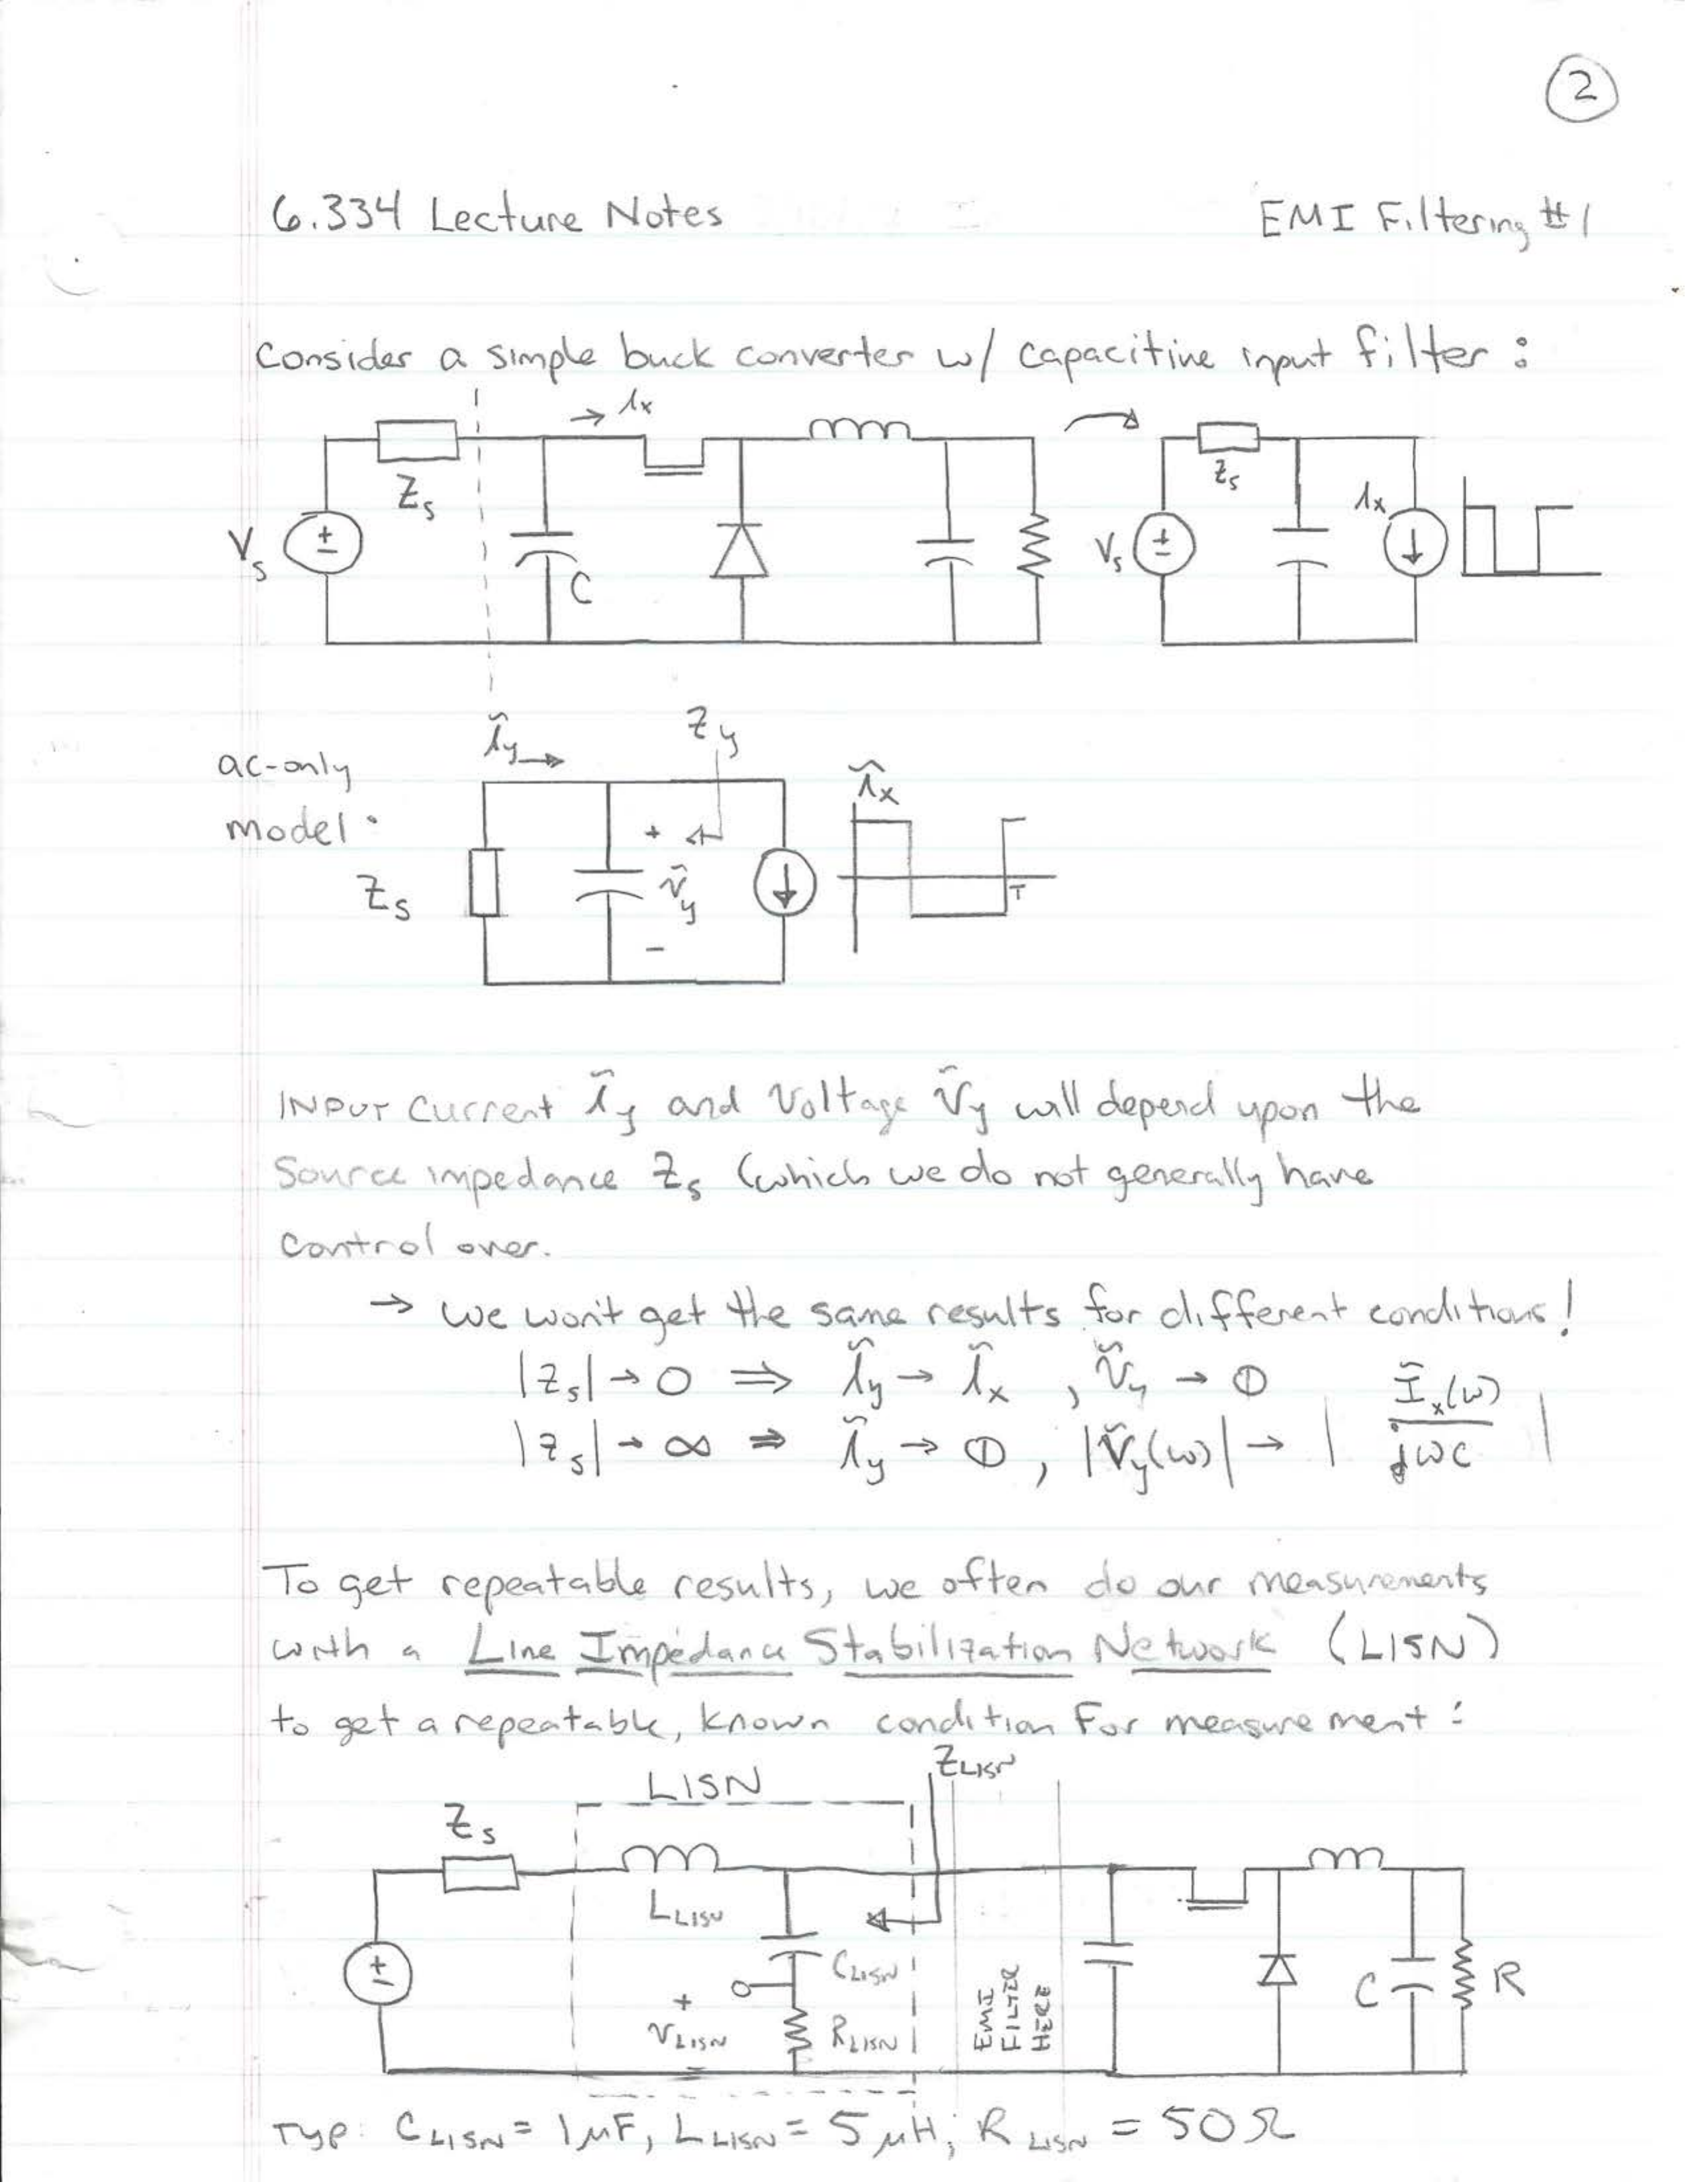 2
6.334 Lecture Notes EMI Filtering #1
Consider a simple buck converter w/ capacitive input filter:
→ ix
Zs
Vs + −
C
Zs
Vs + −
ix
ac-only
model:
ĩy →
Zy
ĩx
Zs
+
ṽy
−
T
INPUT current ĩy and voltage ṽy will depend upon the
Source impedance Zs (which we do not generally have
control over.
→ we won't get the same results for different conditions!
|Zs| → 0 ⇒ ĩy → ĩx , ṽy → 0
|Zs| → ∞ ⇒ ĩy → 0, |Ṽy(ω)| → | Ĩx(ω) / jωC |
To get repeatable results, we often do our measurements
with a Line Impedance Stabilization Network (LISN)
to get a repeatable, known condition for measurement:
ZLISN
LISN
Zs
LLISN
CLISN
+
VLISN
−
RLISN
EMI
FILTER
HERE
+ −
C
R
Typ: CLISN = 1μF, LLISN = 5μH, RLISN = 50Ω